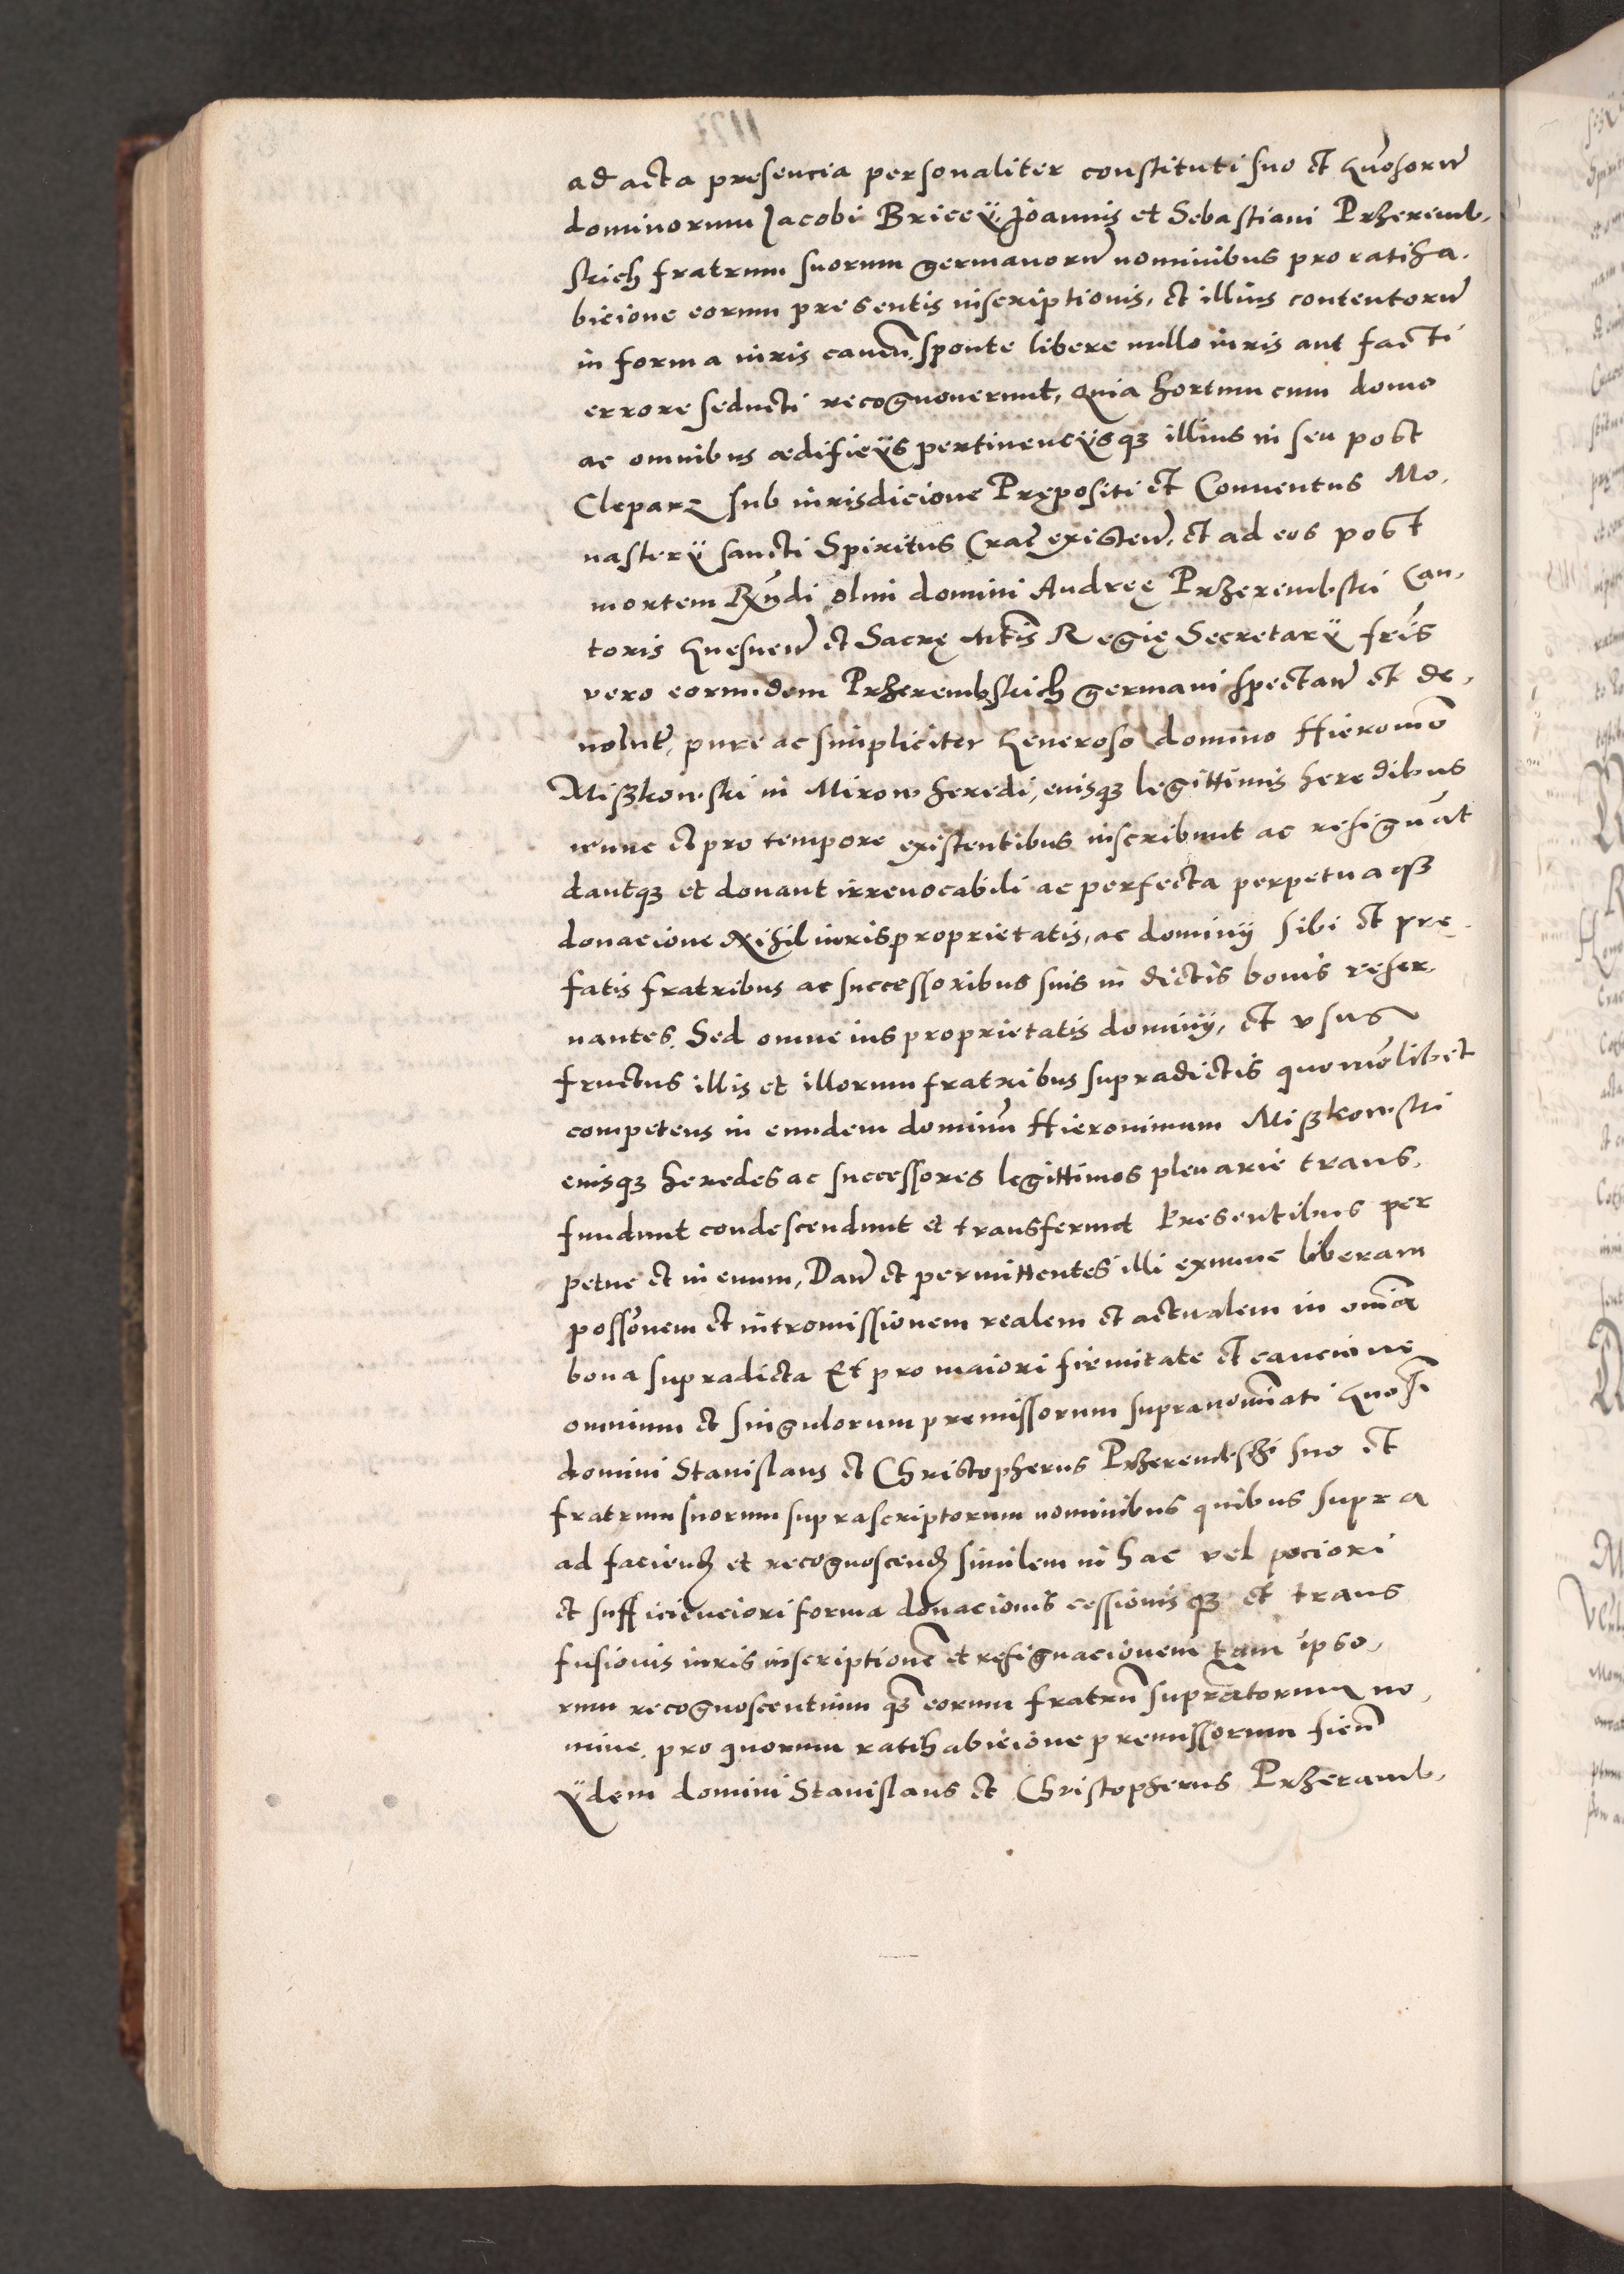 ad acta presencia personaliter constituti suo et Gn̄osorum̄
dominorum Jacobi Briccÿ, Joannis et Sebastiani Przeremb,
skich fratrum suorum germanorum̄ nominibus pro ratiha,
bicione eorum presentis inscriptionis, et illius contentorum̄
in forma iuris caven̄. sponte libere nullo iuris aut facti
errore seducti recognoverunt, Quia hortum cum domo
ac omnibus ædificÿs pertinencÿsqʒ illius in seu post
Clepar​z sub iurisdicione Prępositi et Conventus Mo,
nasterÿ sancti Spiritus Crac̄ existen̄, et ad eos post
mortem Rn̄di olim domini Andreę Przerembski Can,
toris Gnesnen̄ et Sacrę Mt̄is Regię Secretarÿ fr̄is
vero eorundem Przerembskich germani spectan̄ et de,
volut̄, pure ac simpliciter Generoso domino Hieronīo
Mißkowski in Mirow heredi, eiusqʒ legittimis heredibus
nunc et pro tempore existentibus inscribunt ac resignāt
dantqʒ et donant irrevocabili ac perfecta perpetuaqʒ
donacione Nihil iuris proprietatis, ac dominÿ sibi et prę
fatis fratribus ac successoribus suis in dictis bonis reser,
vantes. Sed omne ius proprietatis dominÿ, et usus
fructus illis et illorum fratribus supradictis quomōlibet
competens in eundem dominū Hieronimum Mißkowski
eiusqʒ heredes ac successores legittimos plenarie trans,
fundunt condescendunt et transferunt Presentibus per
petue et in evum, Dan̄ et permittentes illi exnunc liberam
possōnem et intromissionem realem et actualem in om̄ia
bona supradicta Et pro maiori firmitate et caucione
omnium et singulorum premissorum supranoīati Gnosi
domini Stanislaus et Christopherus Przerembski suo et
fratrum suorum suprascriptorum nominibus quibus supra
ad faciend̄ et recognoscend̄ similem in hac vel pociori
et sufficienciori forma donacionis cessionisqʒ et trans
fusionis iuris inscriptionē et resignacionem tam ipso,
rum recognoscentium qʒ̄ eorum fratrū supraātorum no,
mine. pro quorum ratihabicione premissorum fien̄
ÿdem domini Stanislaus et Christopherus Przeramb,